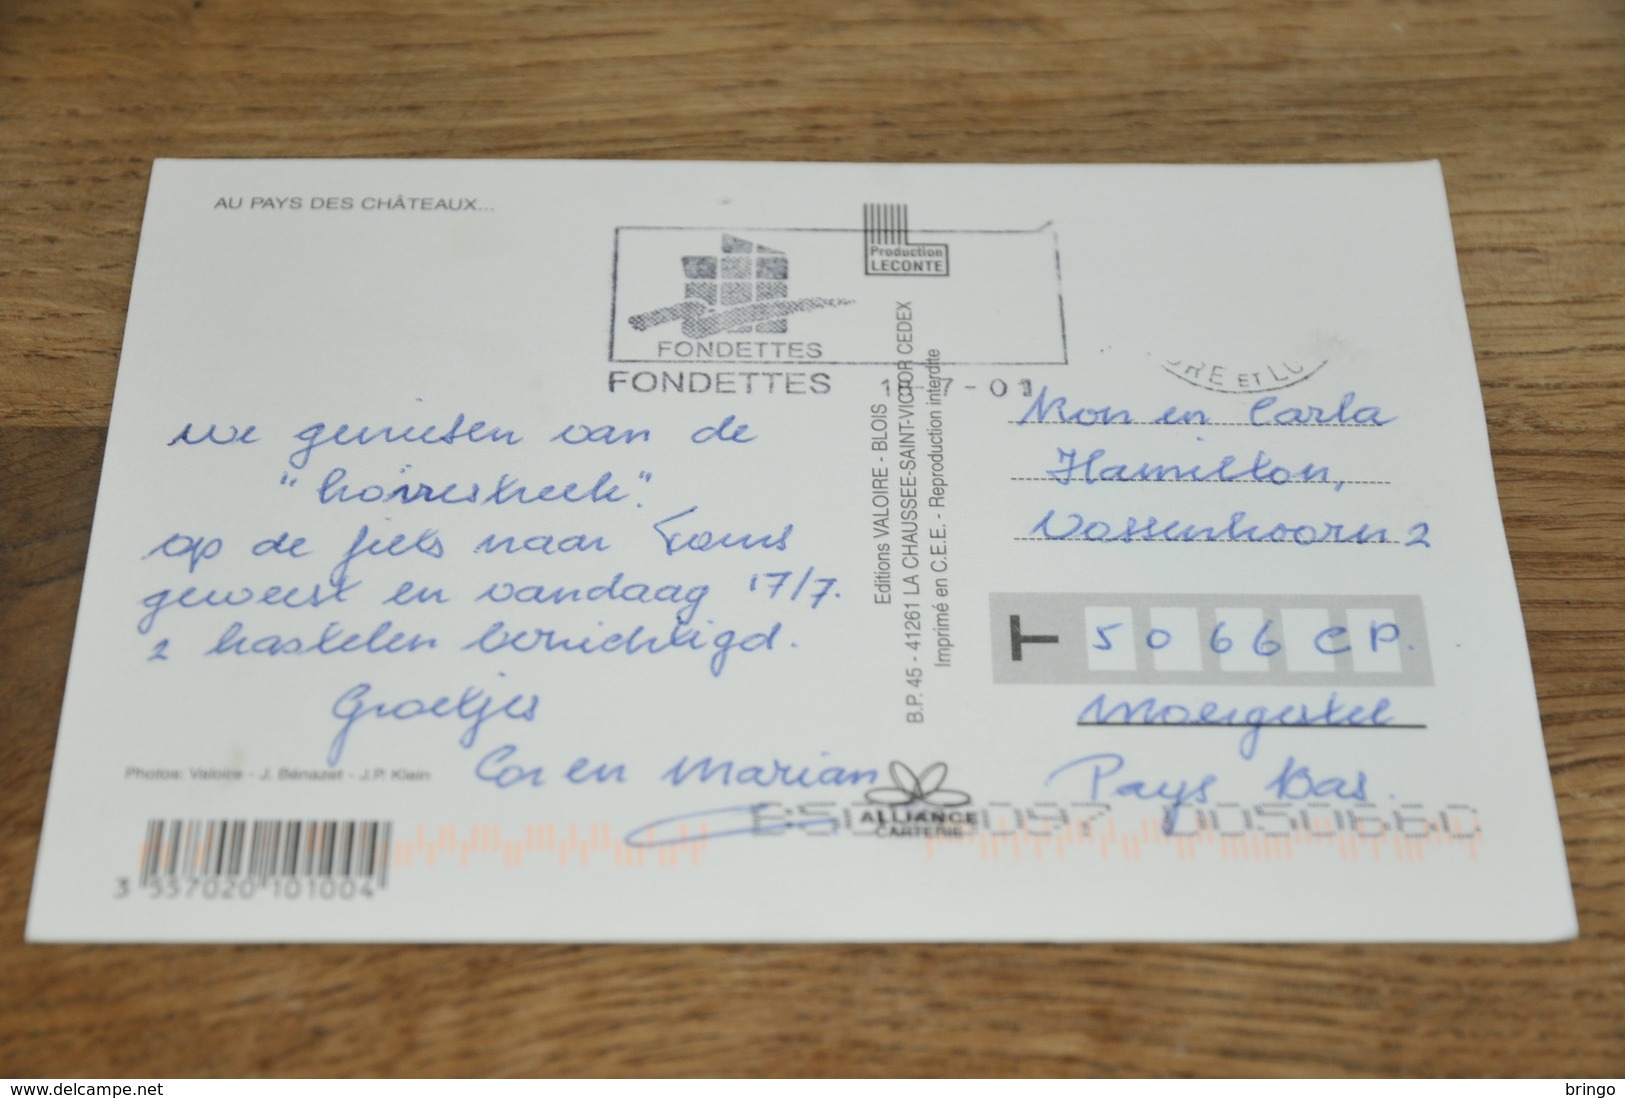 AU PAYS DES CHÂTEAUX...
Production
LECONTE
FONDETTES
FONDETTES
-7-01
RE ET LO
we genieten van de
op de fiets naar Tours
geweest en vandaag 17/7.
2 kastelen bezichtigd.
Groetjes
Cor en Marian
Photos: Valoire - J. Bénazet - J.P. Klein
3 557020 101004
Editions VALOIRE - BLOIS
B.P. 45 - 41261 LA CHAUSSEE-SAINT-VICTOR CEDEX
Imprimé en C.E.E. - Reproduction interdite
en Carla
Hamilton,
Vossenhoorn 2
T 5066 CP.
Moergestel
Pays Bas.
ALLIANCE
CARTERIE
www.delcampe.net
bringo